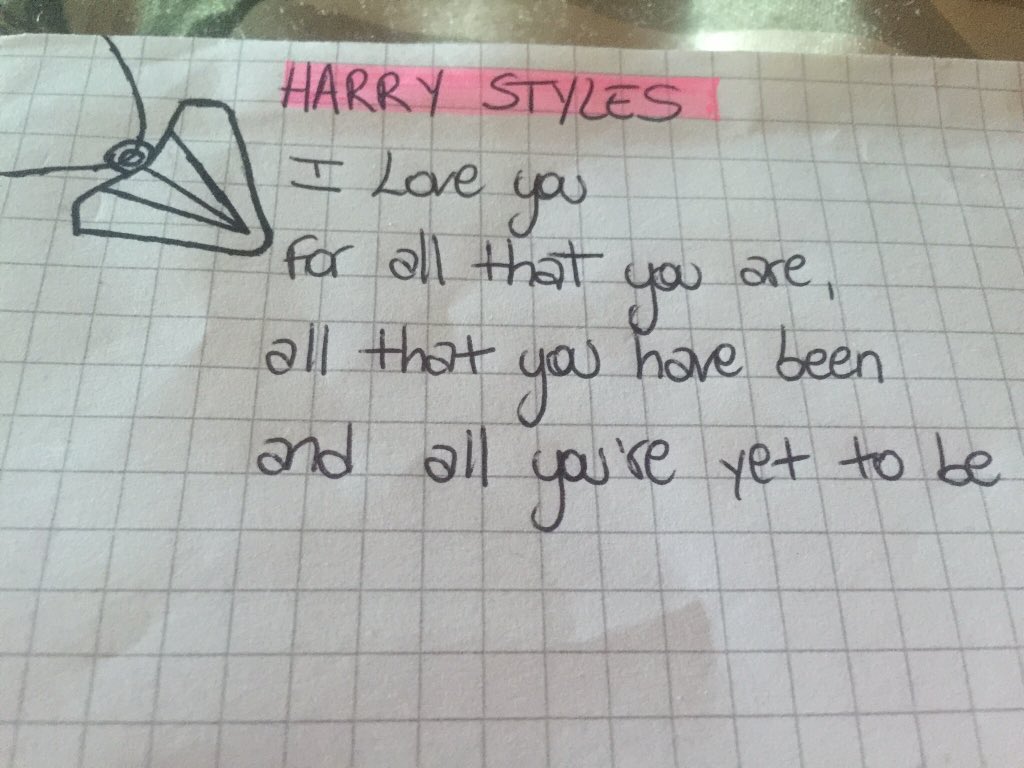 HARRY STYLES
I Love you
for all that you are,
all that you have been
and all you're yet to be